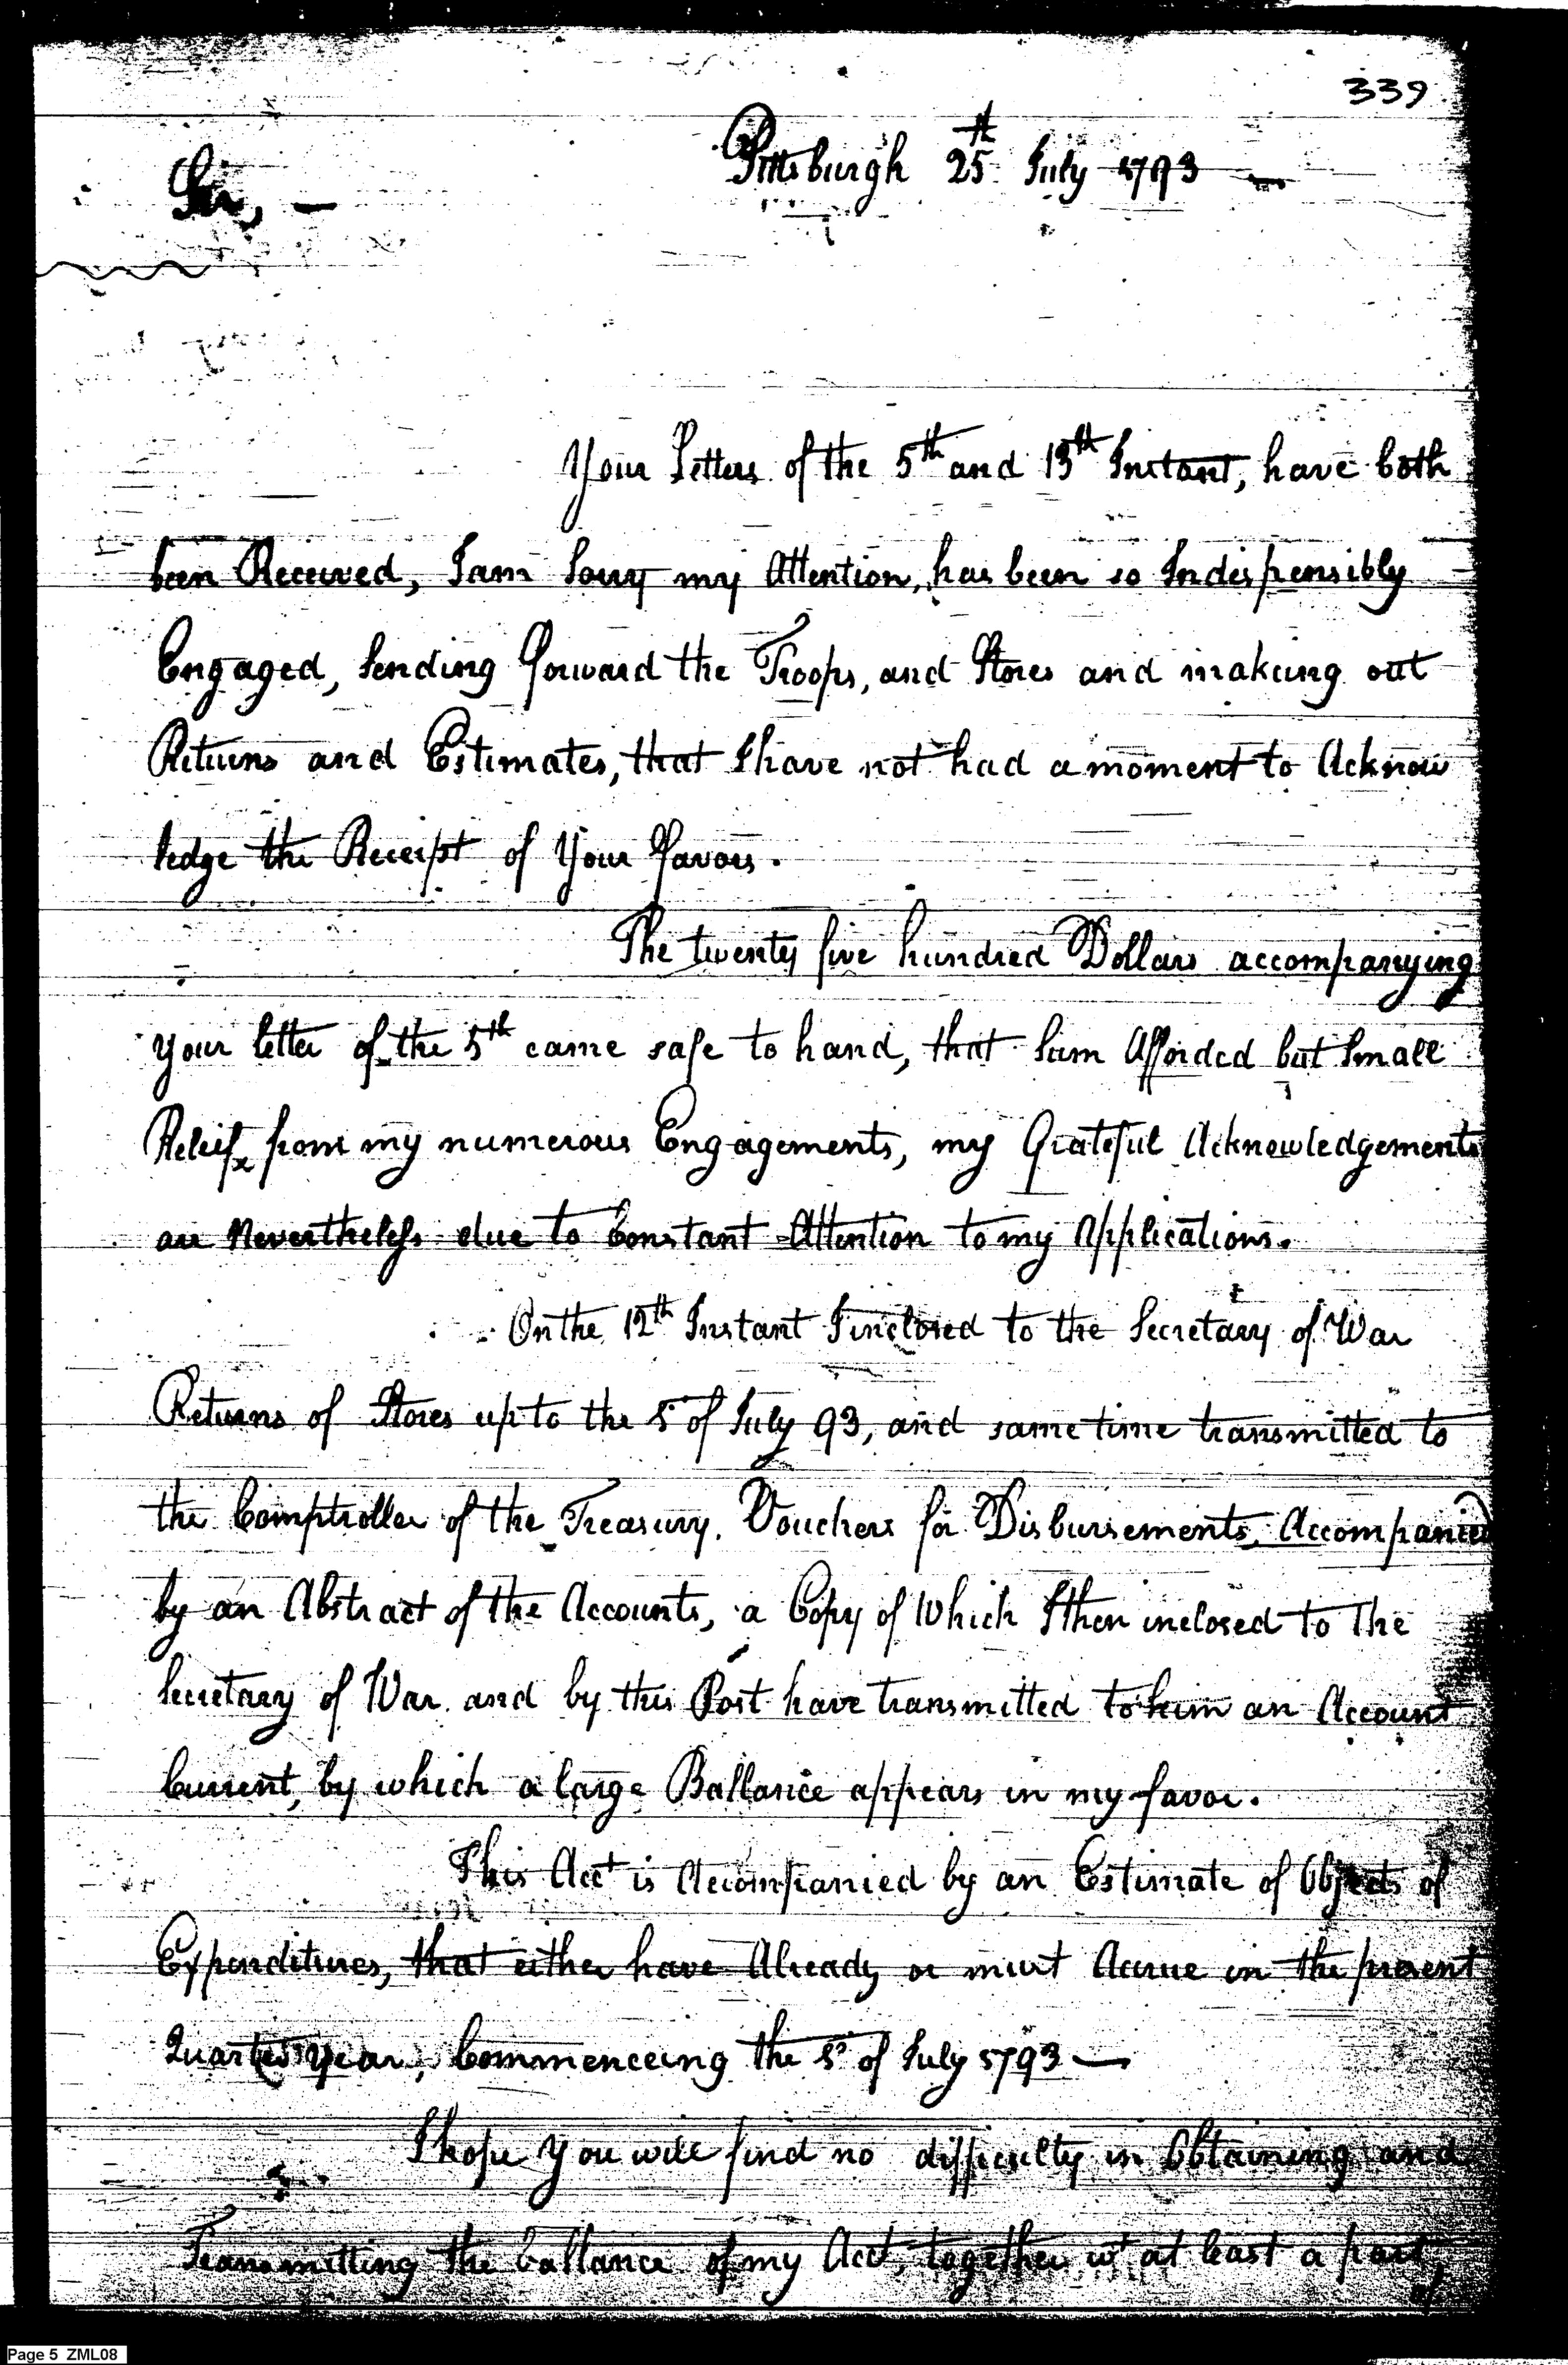 339
Pittsburgh 25th July 1793 —
Sir, —
Your Letters of the 5th and 13th Instant, have both
been Received, I am Sorry my Attention, has been so Indispensibly
Engaged, Sending forward the Troops, and Stores and makeing out
Returns and Estimates, that I have not had a moment to Acknow
ledge the Receipt of Your favors.
The twenty five hundred Dollars accompanying
your letter of the 5th came safe to hand, that Sum Afforded but Small
Releif from my numerous Engagements, my Grateful Acknowledgements
are Nevertheless due to Constant Attention to my Applications.
On the 12th Instant I inclosed to the Secretary of War
Returns of Stores up to the 1st of July 93, and same time transmitted to
the Comptroller of the Treasury, Vouchers for Disbursements, Accompanied
by an Abstract of the Accounts, a Copy of Which I then inclosed to The
Secretary of War and by this Post have transmitted to him an Account
Current, by which a large Ballance appears in my favor.
This Acct is Accompanied by an Estimate of Objects of
Expenditures, that either have Already or must Accrue in the present
Quarter Year, Commenceing the 1st of July 1793 —
I hope You will find no difficulty in Obtaining and
Transmitting the ballance of my Acct, together wt at least a part,
of
Page 5 ZML08